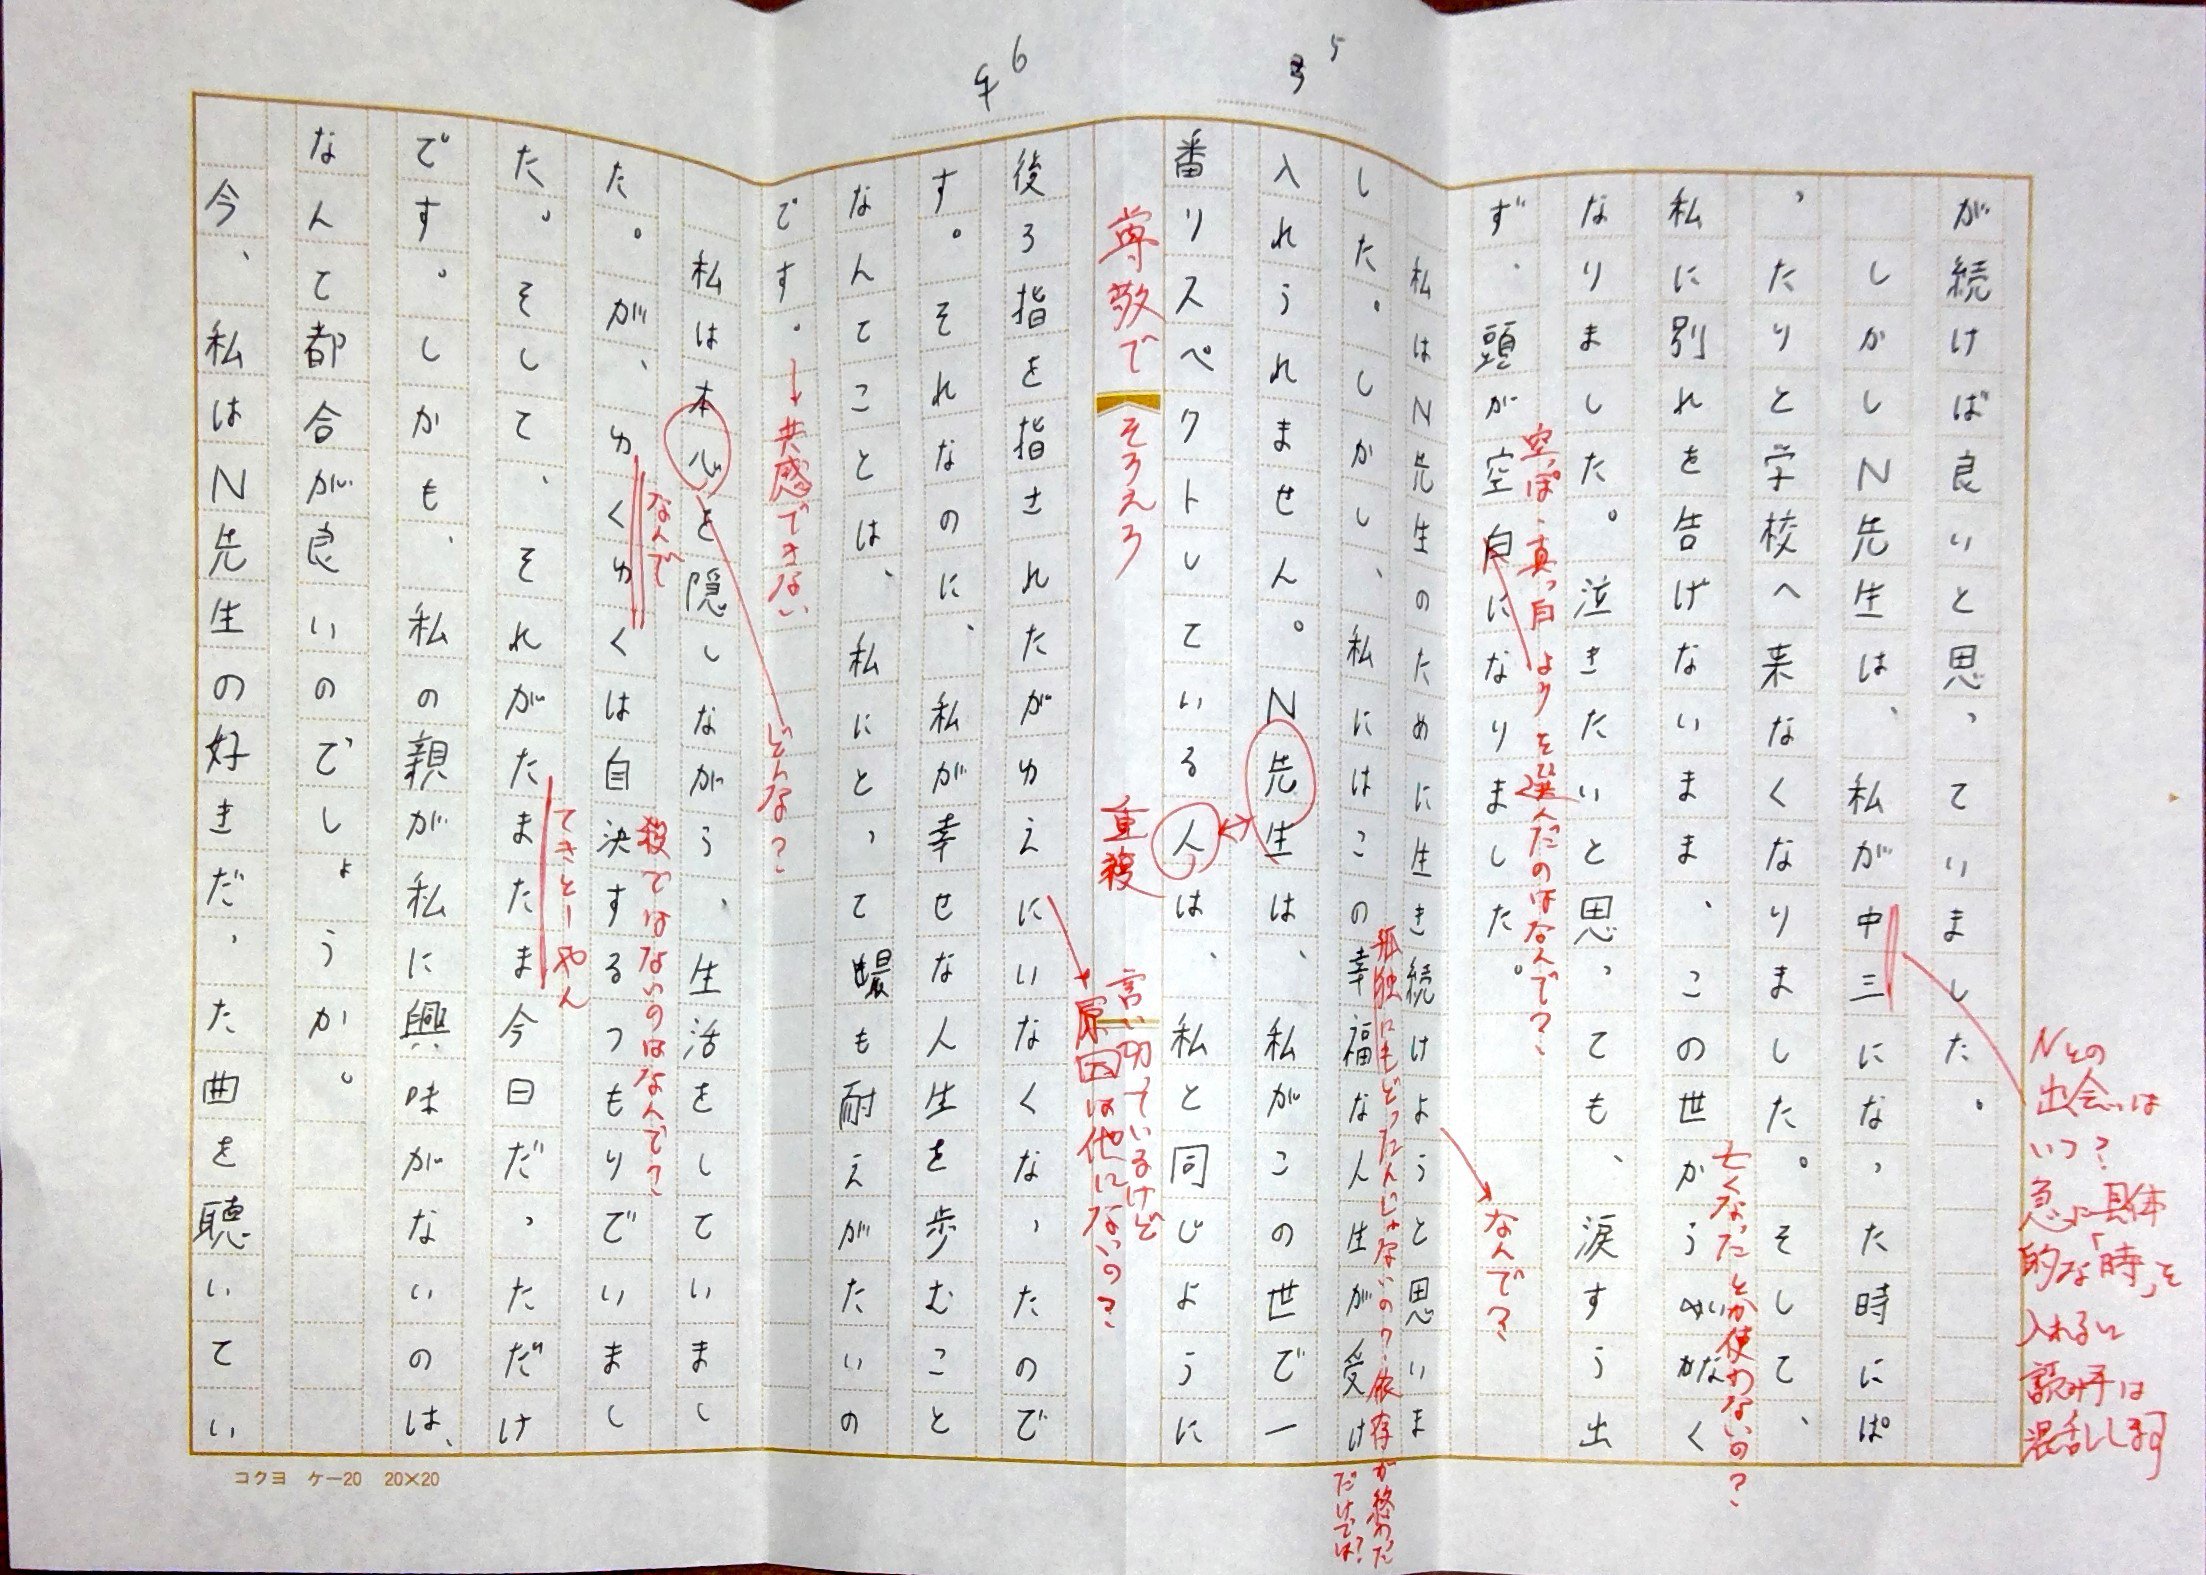 5
6
が続けば良いと思っていました。
しかしN先生は、私が中三になった時にぱ
ったりと学校へ来なくなりました。そして、
私に別れを告げないまま、この世からいなく
なりました。泣きたいと思っても、涙すら出
ず、頭が空白になりました。
私はN先生のために生き続けようと思いま
した。しかし、私にはこの幸福な人生が受け
入れられません。N先生は、私がこの世で一
番リスペクトしている人は、私と同じように
後ろ指を指されたがゆえにいなくなったので
す。それなのに、私が幸せな人生を歩むこと
なんてことは、私にとっても耐えがたいの
です。
私は本心を隠しながら、生活をしていまし
た。が、ゆくゆくは自決するつもりでいまし
た。そして、それがたまたま今日だっただけ
です。しかも、私の親が私に興味がないのは、
なんて都合が良いのでしょうか。
今、私はN先生の好きだった曲を聴いてい
Nとの
出会いは
いつ?
急に具体
的な「時」を
入れると
読み手は
混乱します
亡くなったとか使わないの?
空っぽ・真っ白よりを選んだのはなんで?
なんで?
孤独にもどったんじゃないの?依存が終わっただけでは?
尊敬で
そろえろ
重複
言い切っているけど
原因は他にないの?
→共感できない
どんな?
なんで
殺ではないのはなんで?
てきとーやん
コクヨ ケー20 20×20